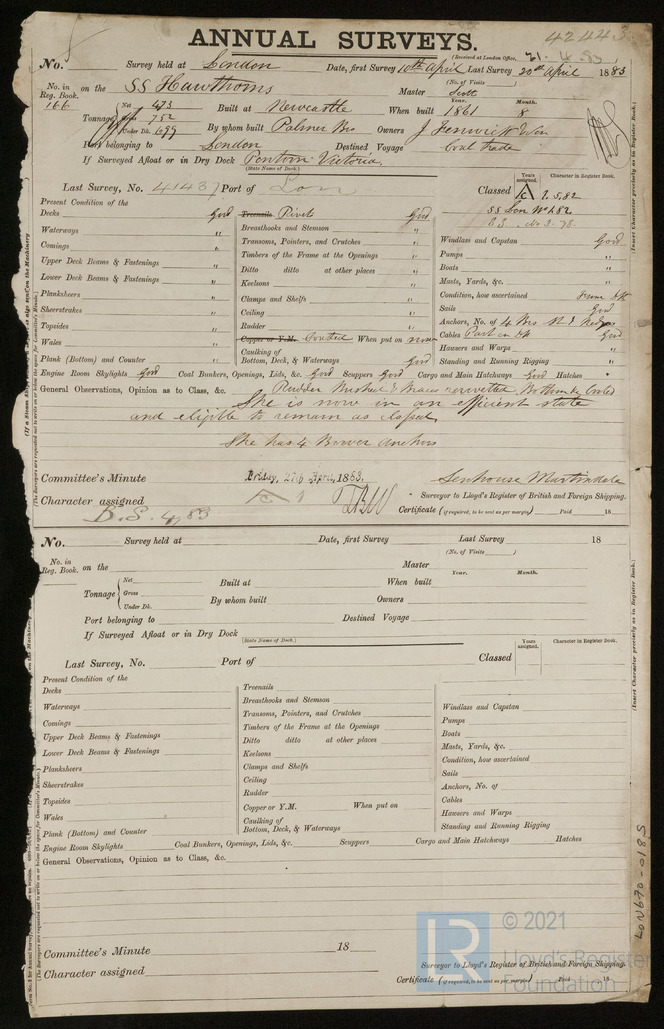 42443
ANNUAL SURVEYS.
(Received at London Office, 21.4.83
No. Survey held at London Date, first Survey 10th April Last Survey 20th April 1883
(No. of Visits )
No. in Reg. Book. 166 on the SS Hawthorns Master Scott
Year. Month.
Tonnage Net 473 Gross 752 Under Dk. 699 Built at Newcastle When built 1861 8
By whom built Palmer Bros Owners J. Fenwick & Son
Port belonging to London Destined Voyage Coal trade
If Surveyed Afloat or in Dry Dock Pontoon Victoria
(State Name of Dock.)
Last Survey, No. 41437 Port of Lon Classed Years assigned. Character in Register Book.
A 1. 5,82
SS Lon No 1.82
Present Condition of the
Decks Good Treenails Rivets Good
Waterways " Breasthooks and Stemson " Windlass and Capstan Good
Comings " Transoms, Pointers, and Crutches " Pumps "
Upper Deck Beams & Fastenings " Timbers of the Frame at the Openings " Boats "
Lower Deck Beams & Fastenings " Ditto ditto at other places " Masts, Yards, &c. "
Planksheers " Keelsons " Condition, how ascertained from dk
Sheerstrakes " Clamps and Shelfs " Sails Good
Topsides " Ceiling " Anchors, No. of 4 Brs
Wales " Rudder " Cables Part on dk Good
Plank (Bottom) and Counter " Copper or Y.M. Coated When put on now Hawsers and Warps "
Caulking of Bottom, Deck, & Waterways Good Standing and Running Rigging "
Engine Room Skylights Good Coal Bunkers, Openings, Lids, &c. Good Scuppers Good Cargo and Main Hatchways Good Hatches "
General Observations, Opinion as to Class, &c. Rudder Bottom Coated
She is now in an efficient state
and eligible to remain as classed
She has 4 Bower anchors
Committee's Minute Friday, 27th April, 1883. Senhouse Martindale
Character assigned A 1 Surveyor to Lloyd's Register of British and Foreign Shipping.
B.S. 4,83 Certificate (if required, to be sent as per margin) Paid 18
No. Survey held at Date, first Survey Last Survey 18
(No. of Visits )
No. in Reg. Book. on the Master
Year. Month.
Tonnage Net Gross Under Dk. Built at When built
By whom built Owners
Port belonging to Destined Voyage
If Surveyed Afloat or in Dry Dock
(State Name of Dock.)
Last Survey, No. Port of Classed Years assigned. Character in Register Book.
Present Condition of the
Decks Treenails
Waterways Breasthooks and Stemson Windlass and Capstan
Comings Transoms, Pointers, and Crutches Pumps
Upper Deck Beams & Fastenings Timbers of the Frame at the Openings Boats
Lower Deck Beams & Fastenings Ditto ditto at other places Masts, Yards, &c.
Planksheers Keelsons Condition, how ascertained
Sheerstrakes Clamps and Shelfs Sails
Topsides Ceiling Anchors, No. of
Wales Rudder Cables
Plank (Bottom) and Counter Copper or Y.M. When put on Hawsers and Warps
Caulking of Bottom, Deck, & Waterways Standing and Running Rigging
Engine Room Skylights Coal Bunkers, Openings, Lids, &c. Scuppers Cargo and Main Hatchways Hatches
General Observations, Opinion as to Class, &c.
Committee's Minute 18
Character assigned Surveyor to Lloyd's Register of British and Foreign Shipping.
Certificate (if required, to be sent as per margin) Paid 18
(Insert Character precisely as in Register Book.)
(Insert Character precisely as in Register Book.)
LON670-0185
LR
© 2021
Lloyd's Register
Foundation